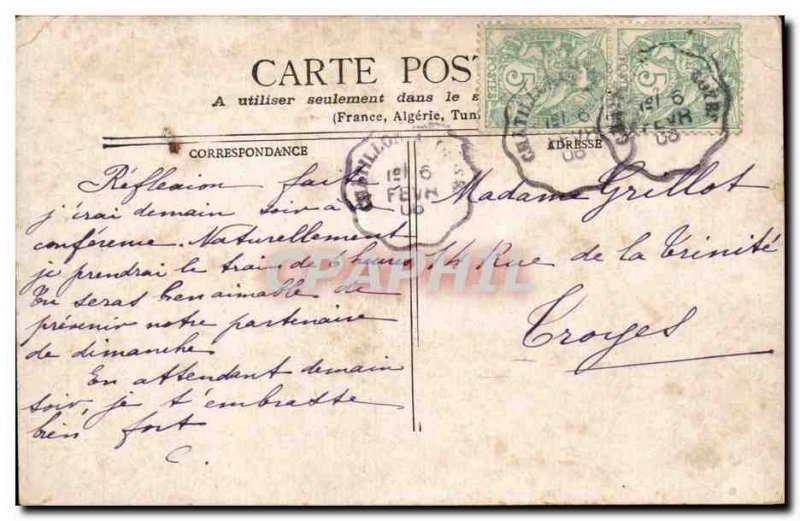 CARTE POS
A utiliser seulement dans le s
(France, Algérie, Tun
CORRESPONDANCE
ADRESSE
5
5
POSTES
CHATILLON
6
FEVR
06
CHATILLON
6
FEVR
06
6
FEVR
06
Réflexion fait
j'irai demain soir à
conférence. Naturellement
je prendrai le train de heures
Tu seras bien aimable de
prévenir notre partenaire
de dimanche
En attendant demain
soir, je t'embrasse
bien fort
C.
Madame Grillot
14 Rue de la Trinité
Troyes
CPAPHIL